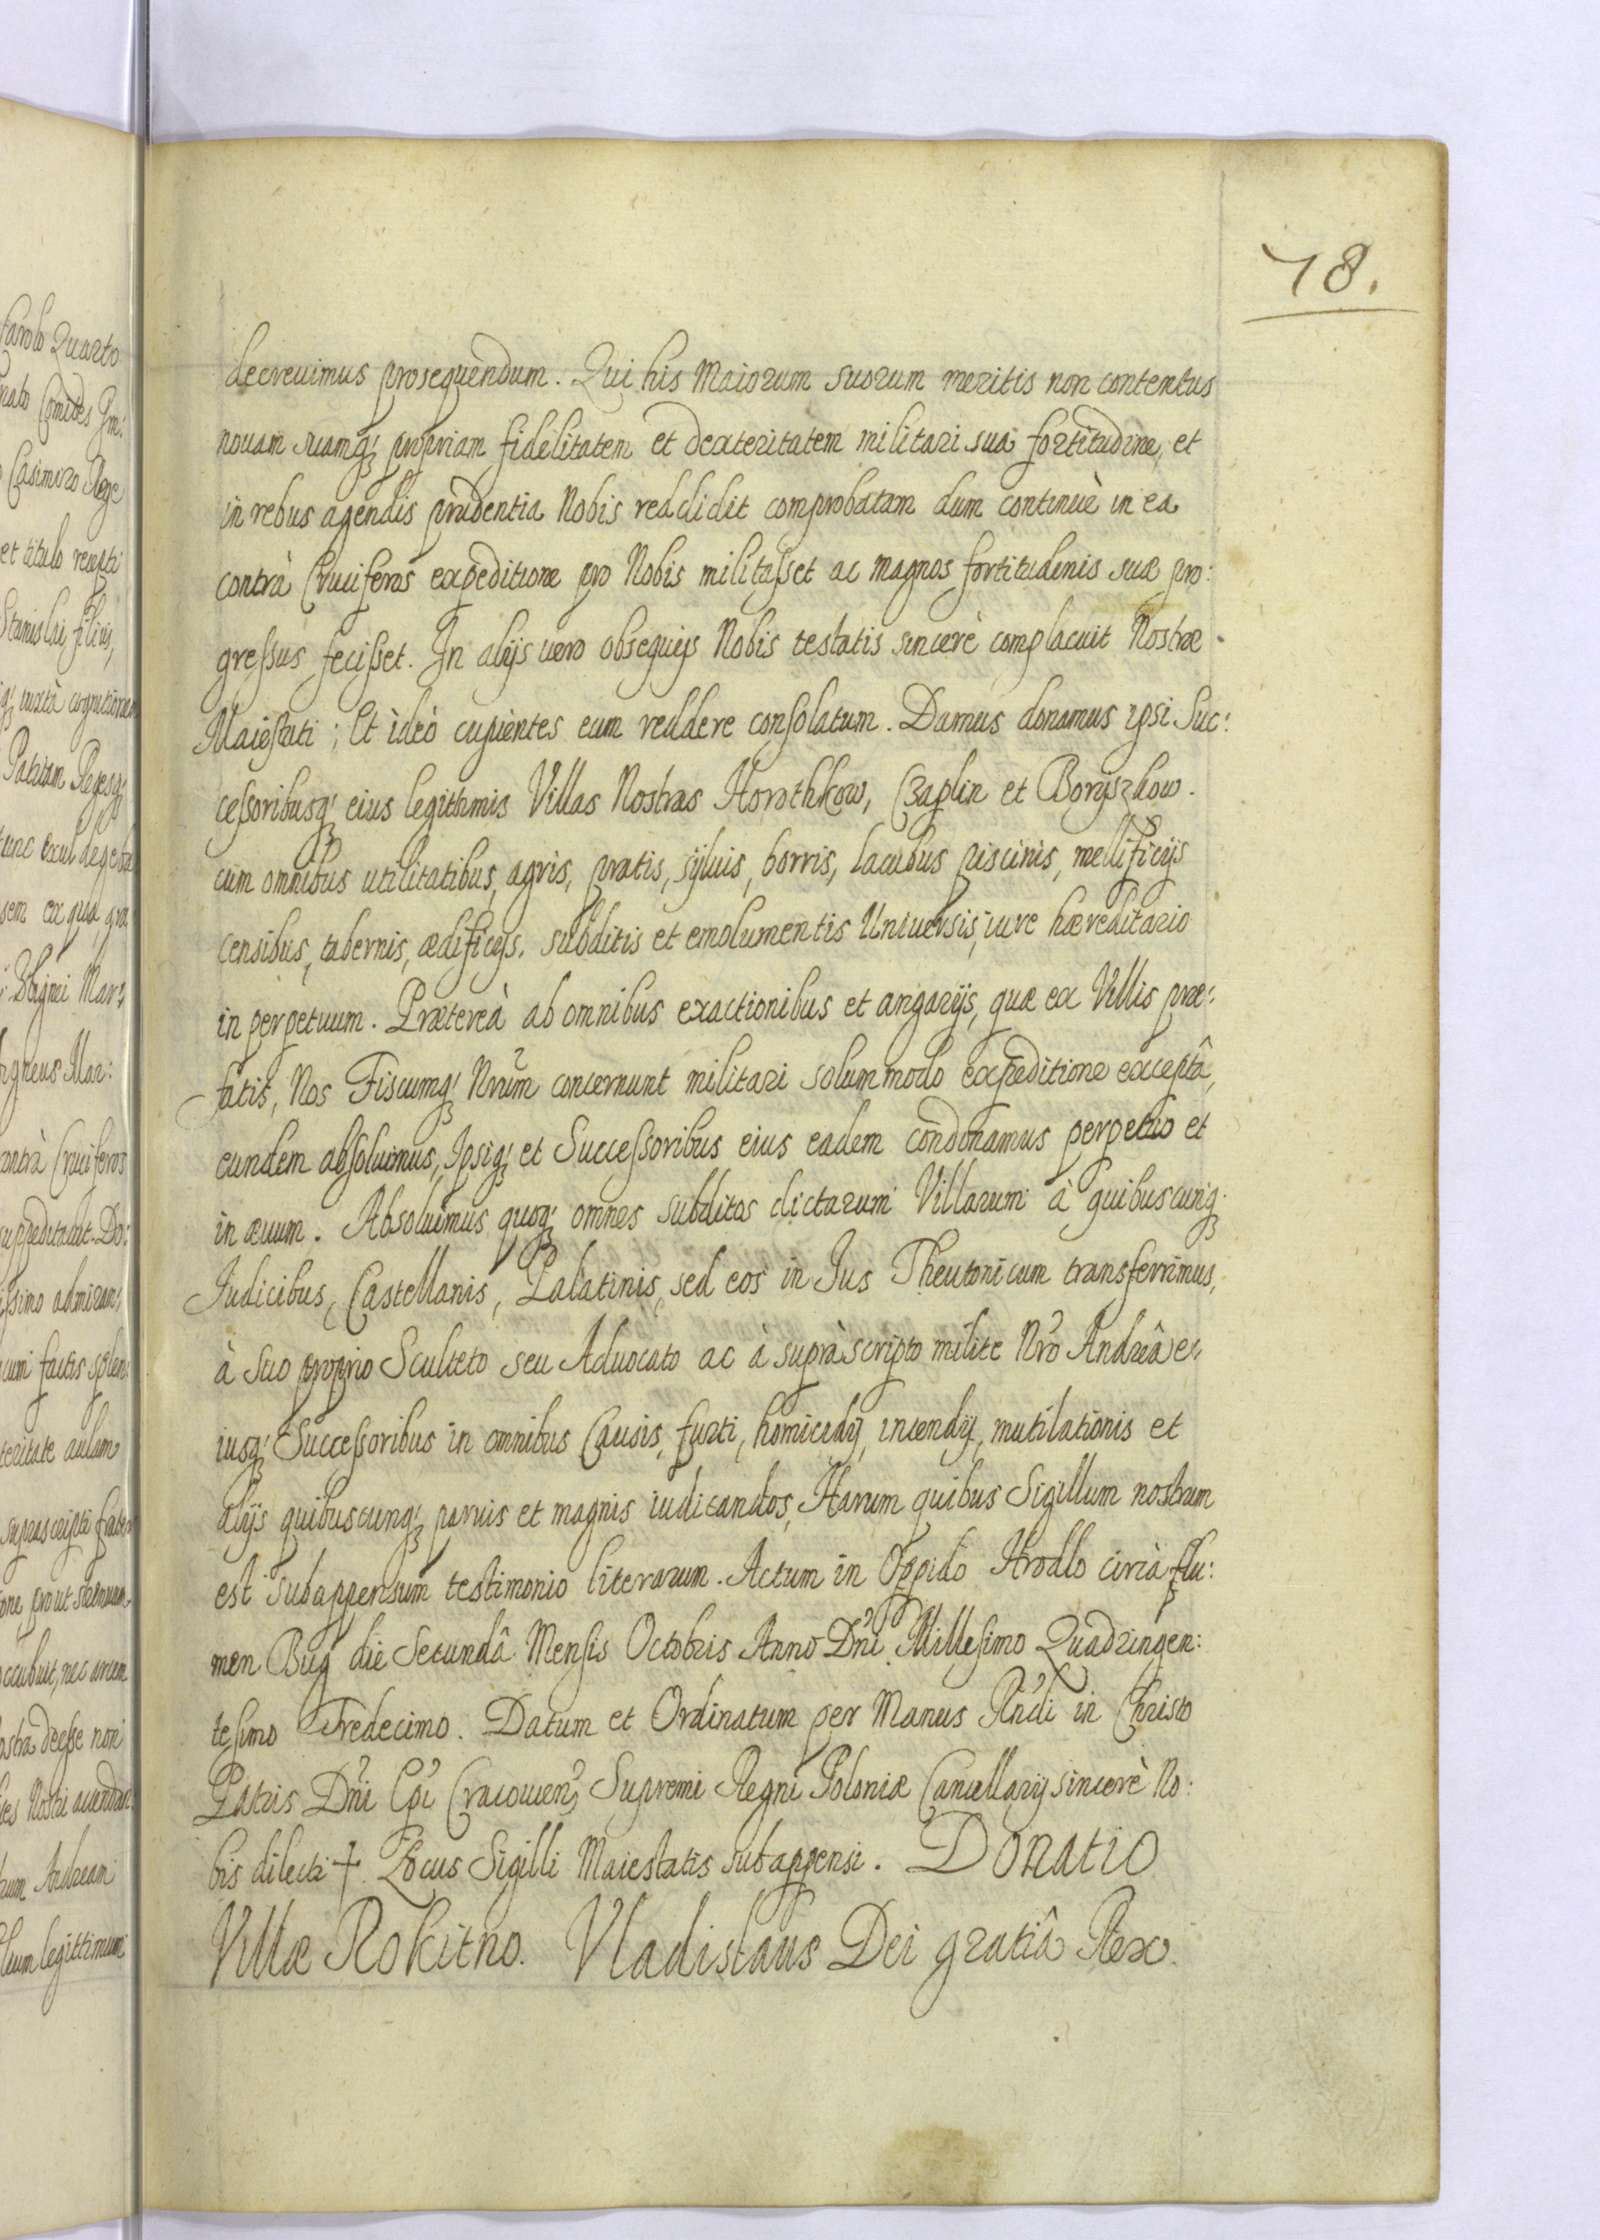 78.
decrevimus prosequendum. Qui his Maiorum suorum meritis non contentus
novam suamq; propriam fidelitatem et dexteritatem militari sua fortitudine, et
in rebus agendis prudentia Nobis reddidit comprobatam dum continuè in ea
contrà Cruciferos expeditione pro Nobis militasset ac magnos fortitudinis suæ pro:
gressus fecisset. In alijs vero obsequijs Nobis testatis sincerè complacuit Nostræ
Maiestati; Et ideò cupientes eum reddere consolatum. Damus donamus ipsi Suc:
cessoribusq; eius legittimis Villas Nostras Horothkow, Czaplin et Boryszkow.
cum omnibus utilitatibus, agris, pratis, syluis, borris, lacubus piscinis, mellificijs
censibus, tabernis, ædificijs, subditis et emolumentis Uniuersis, iure hæreditario
in perpetuum. Prætereà ab omnibus exactionibus et angarijs, quæ ex Villis præ:
fatis, Nos Fiscumq; Nrum concernunt militari solummodo expeditione exceptâ,
eundem absoluimus, Ipsiq; et Successoribus eius eadem condonamus perpetuo et
in ævum. Absoluimus quoq; omnes subditos dictarum Villarum à quibuscunq;
Iudicibus, Castellanis, Palatinis, sed eos in Ius Theutonicum transferrimus,
à suo proprio Sculteto seu Aduocato ac à supràscripto milite Nro Andreâ e:
iusq; Successoribus in omnibus Causis, furti, homicidij, incendij, mutilationis et
alijs quibuscunq; paruis et magnis iudicandos, Harum quibus Sigillum nostrum
est subappensum testimonio literarum. Actum in Oppido Hrodlo circà flu:
men Bug die Secundâ Mensis Octobris Anno Dni Millesimo Quadringen:
tesimo Tredecimo. Datum et Ordinatum per Manus Rndi in Christo
Patris Dni Epi Cracouien Supremi Regni Poloniæ Cancellarij sincerè No:
bis dilecti +. Locus Sigilli Maiestatis subappensi. Donatio
Villæ Rokitno. Vladislaus Dei gratiâ Rex.